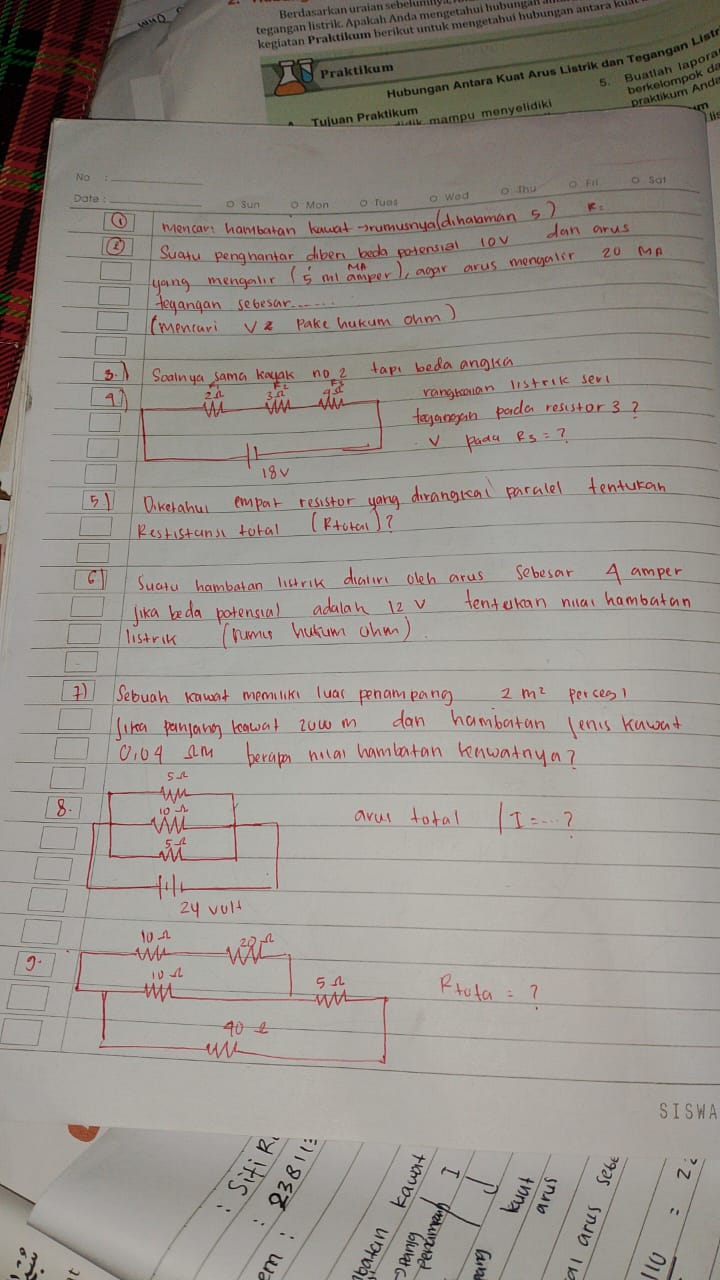 Berdasarkan uraian sebelumnya,
tegangan listrik. Apakah Anda mengetahui hubungan antara
kegiatan Praktikum berikut untuk mengetahui hubungan antara kuat
Praktikum
Hubungan Antara Kuat Arus Listrik dan Tegangan Listr
Tujuan Praktikum
mampu menyelidiki
5. Buatlah lapora
berkelompok da
praktikum Anda
No :
Date :
Sun Mon Tues Wed Thu Fri Sat
① Mencari hambatan kawat → rumusnya (dihalaman 5) R=
② Suatu penghantar diberi beda potensial 10V dan arus
yang mengalir (5 ml amper), agar arus mengalir 20 MA
MA
tegangan sebesar......
(mencari V2 Pake hukum ohm)
3.) Soalnya sama kayak no 2 tapi beda angka
4) rangkaian listrik seri
R2 R3
2Ω 3Ω 4Ω
tegangan pada resistor 3 ?
V pada R3 = ?
18 V
5) Diketahui empat resistor yang dirangkai paralel tentukan
Restistansi total (Rtotal)?
6) Suatu hambatan listrik dialiri oleh arus sebesar 4 amper
Jika beda potensial adalah 12 V tentukan nilai hambatan
listrik (rumus hukum ohm).
7) Sebuah kawat memiliki luas penampang 2 m² percegi
Jika panjang kawat 2000 m dan hambatan Jenis kawat
0,04 Ωm berapa nilai hambatan kawatnya?
8. 5Ω
10 Ω
5Ω
arus total / I = ...?
24 volt
9. 10 Ω 20 Ω
10 Ω 5 Ω
Rtota = ?
40
SISWA
: Siti R
em : 23811
hbatan kawat
Panjang
Penampang
I
kuat
arus
al arus sebe
110 = 2